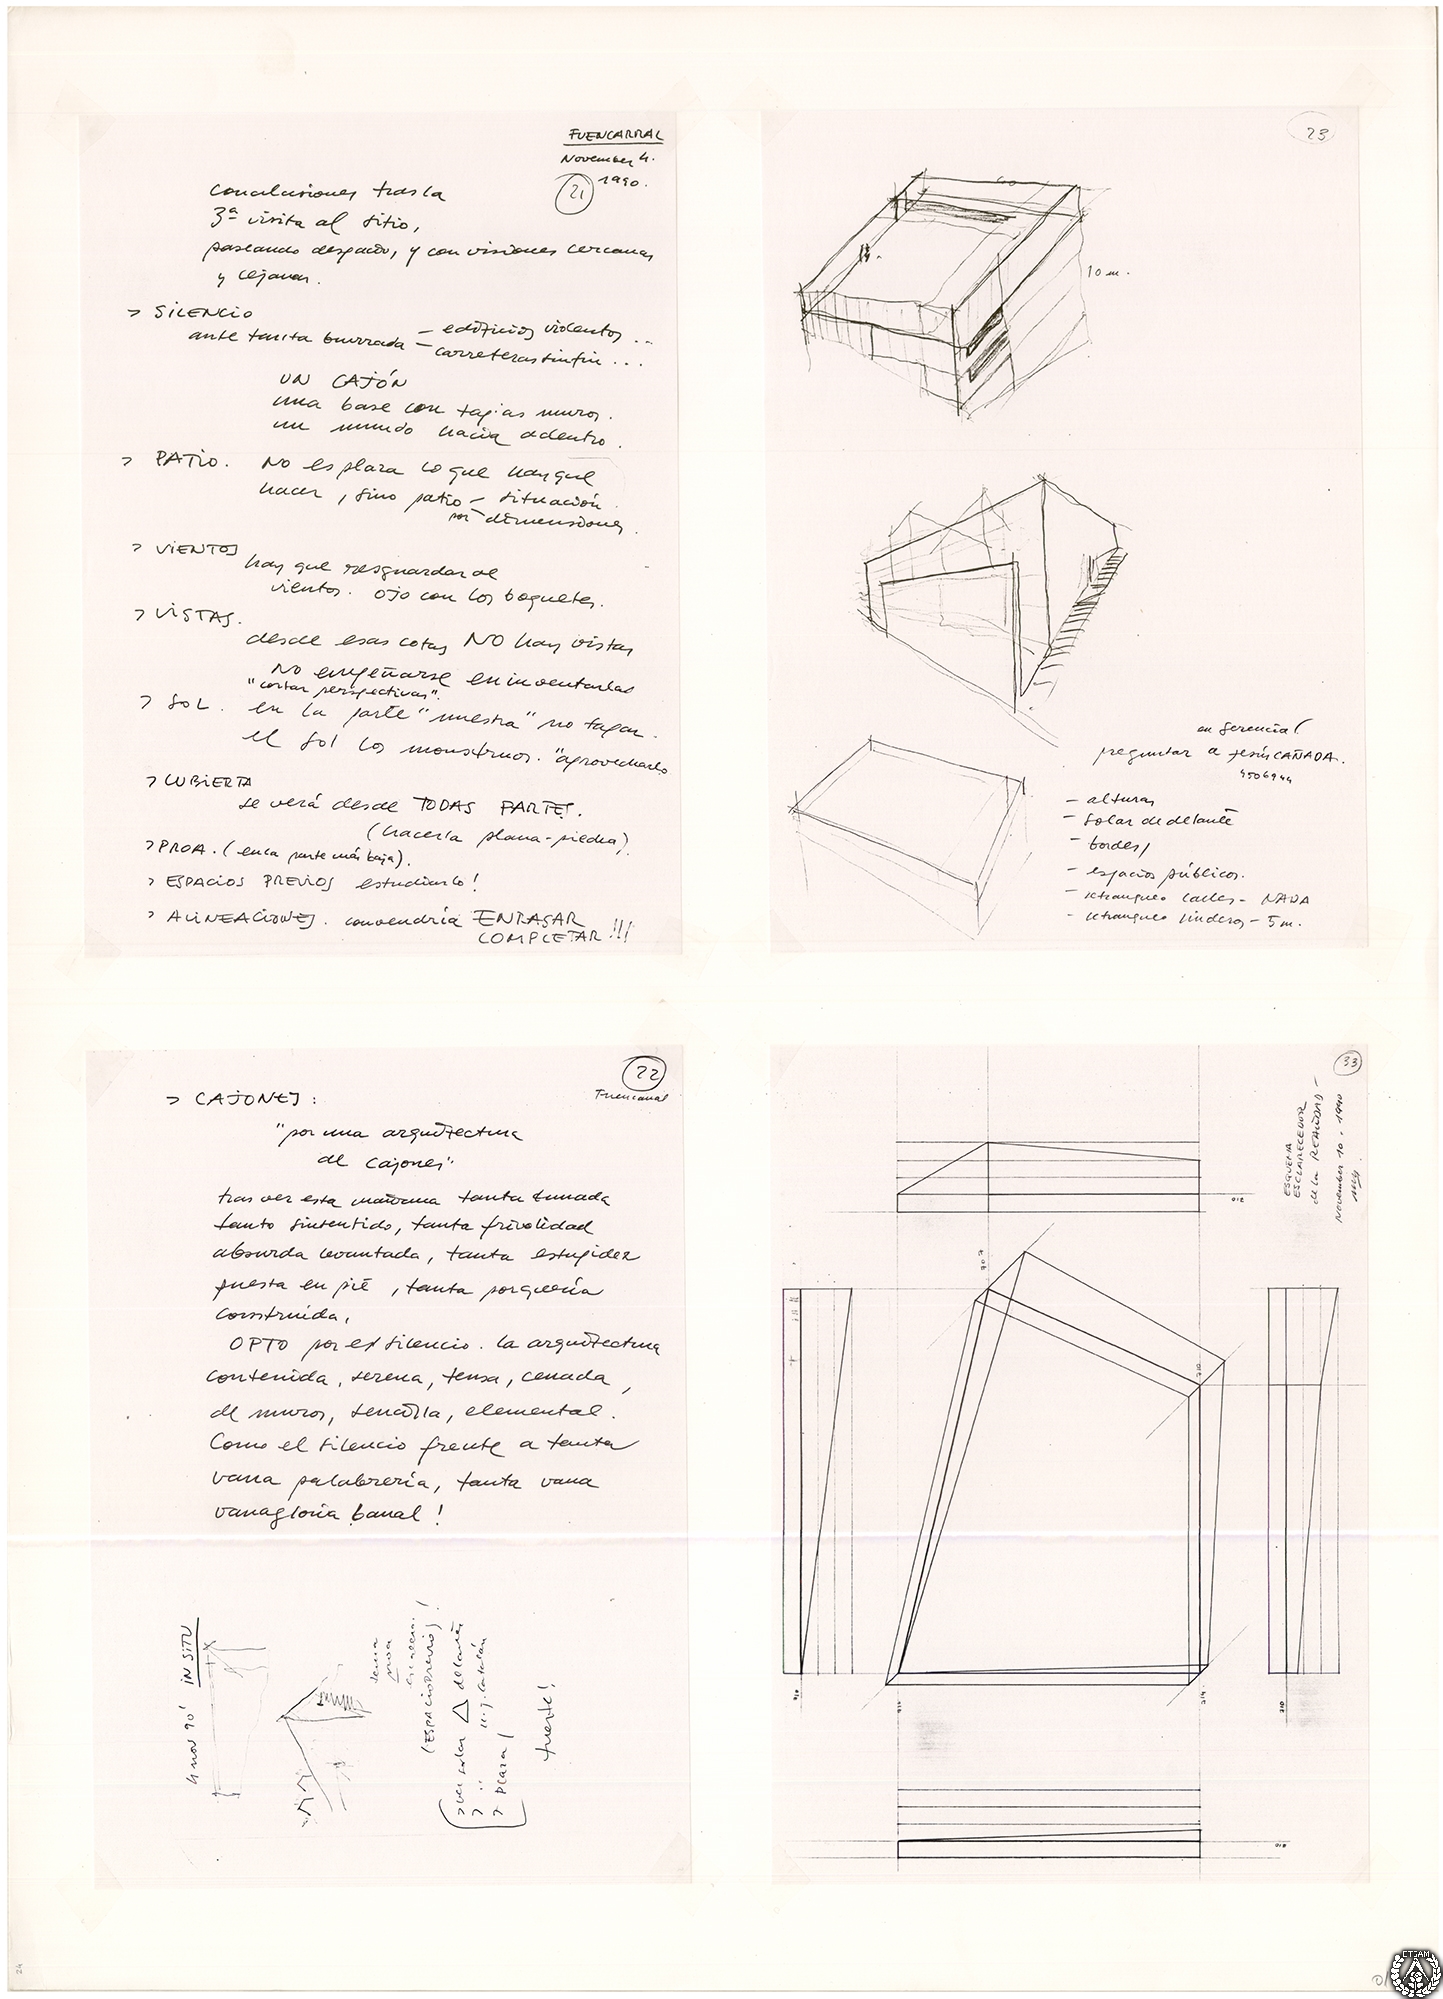 FUENCARRAL
November 4.
1990.
21
conclusiones tras la
3ª visita al sitio,
paseando despacio, y con visiones cercanas
y lejanas.
> SILENCIO
ante tanta burrada - edificios violentos ...
- carreteras sin fin ...
UN CAJÓN
una base con tapias muros.
un mundo hacia adentro.
> PATIO. NO es plaza lo que hay que
hacer, sino patio - situación
por - dimensiones.
> VIENTOS
hay que resguardar de
vientos. OJO con los boquetes.
> VISTAS.
desde esas cotas NO hay vistas
NO empeñarse en inventarlas
"cortar perspectivas".
> SOL. en la parte "nuestra" no tapan
el sol los monstruos. "aprovecharlo
> CUBIERTA
se verá desde TODAS PARTES.
(hacerla plana-piedra).
> PROA. (en la parte más baja).
> ESPACIOS PREVIOS estudiarlo!
> ALINEACIONES. convendría ENRASAR
COMPLETAR!!!
23
10 m.
en Gerencia!
preguntar a Jesús CAÑADA.
4506944
- alturas
- solar de delante
- bordes
- espacios públicos.
- retranqueo calles - NADA
- retranqueo linderos - 5 m.
22
Fuencarral
> CAJONES:
"por una arquitectura
de cajones"
tras ver esta mañana tanta
tanto sinsentido, tanta frivolidad
absurda levantada, tanta estupidez
puesta en pié, tanta porquería
construida,
OPTO por el silencio. la arquitectura
contenida, serena, tensa, cerrada,
de muros, sencilla, elemental.
Como el silencio frente a tanta
vana palabrería, tanta vana
vanagloria banal!
4 nov 90' IN SITU
(ESPACIO PREVIO)!
> ver solar delante
> PLAZA!
fuerte!
33
ESQUEMA
ESCLARECEDOR
de la REALIDAD -
November 10. 1990
24
ETSAM